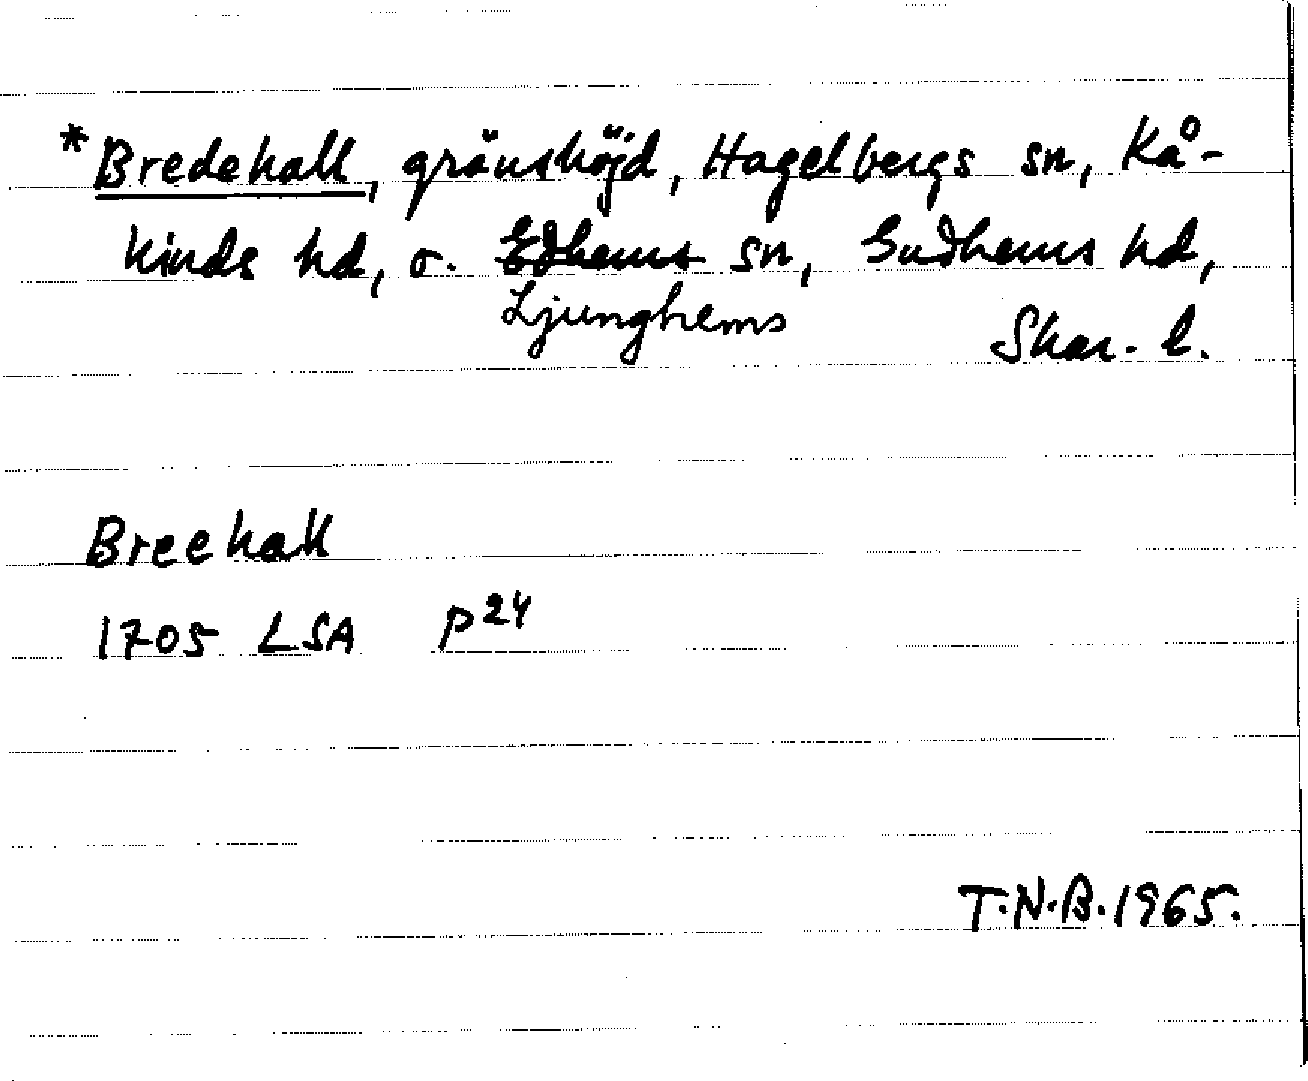 *Bredehall, gränshöjd, Hagelbergs sn, Kå-
kinds hd, o. Edhems sn, Gudhems hd,
Ljunghems
Skar. l.
Breehall
1705 LSA P24
T.N.B. 1965.